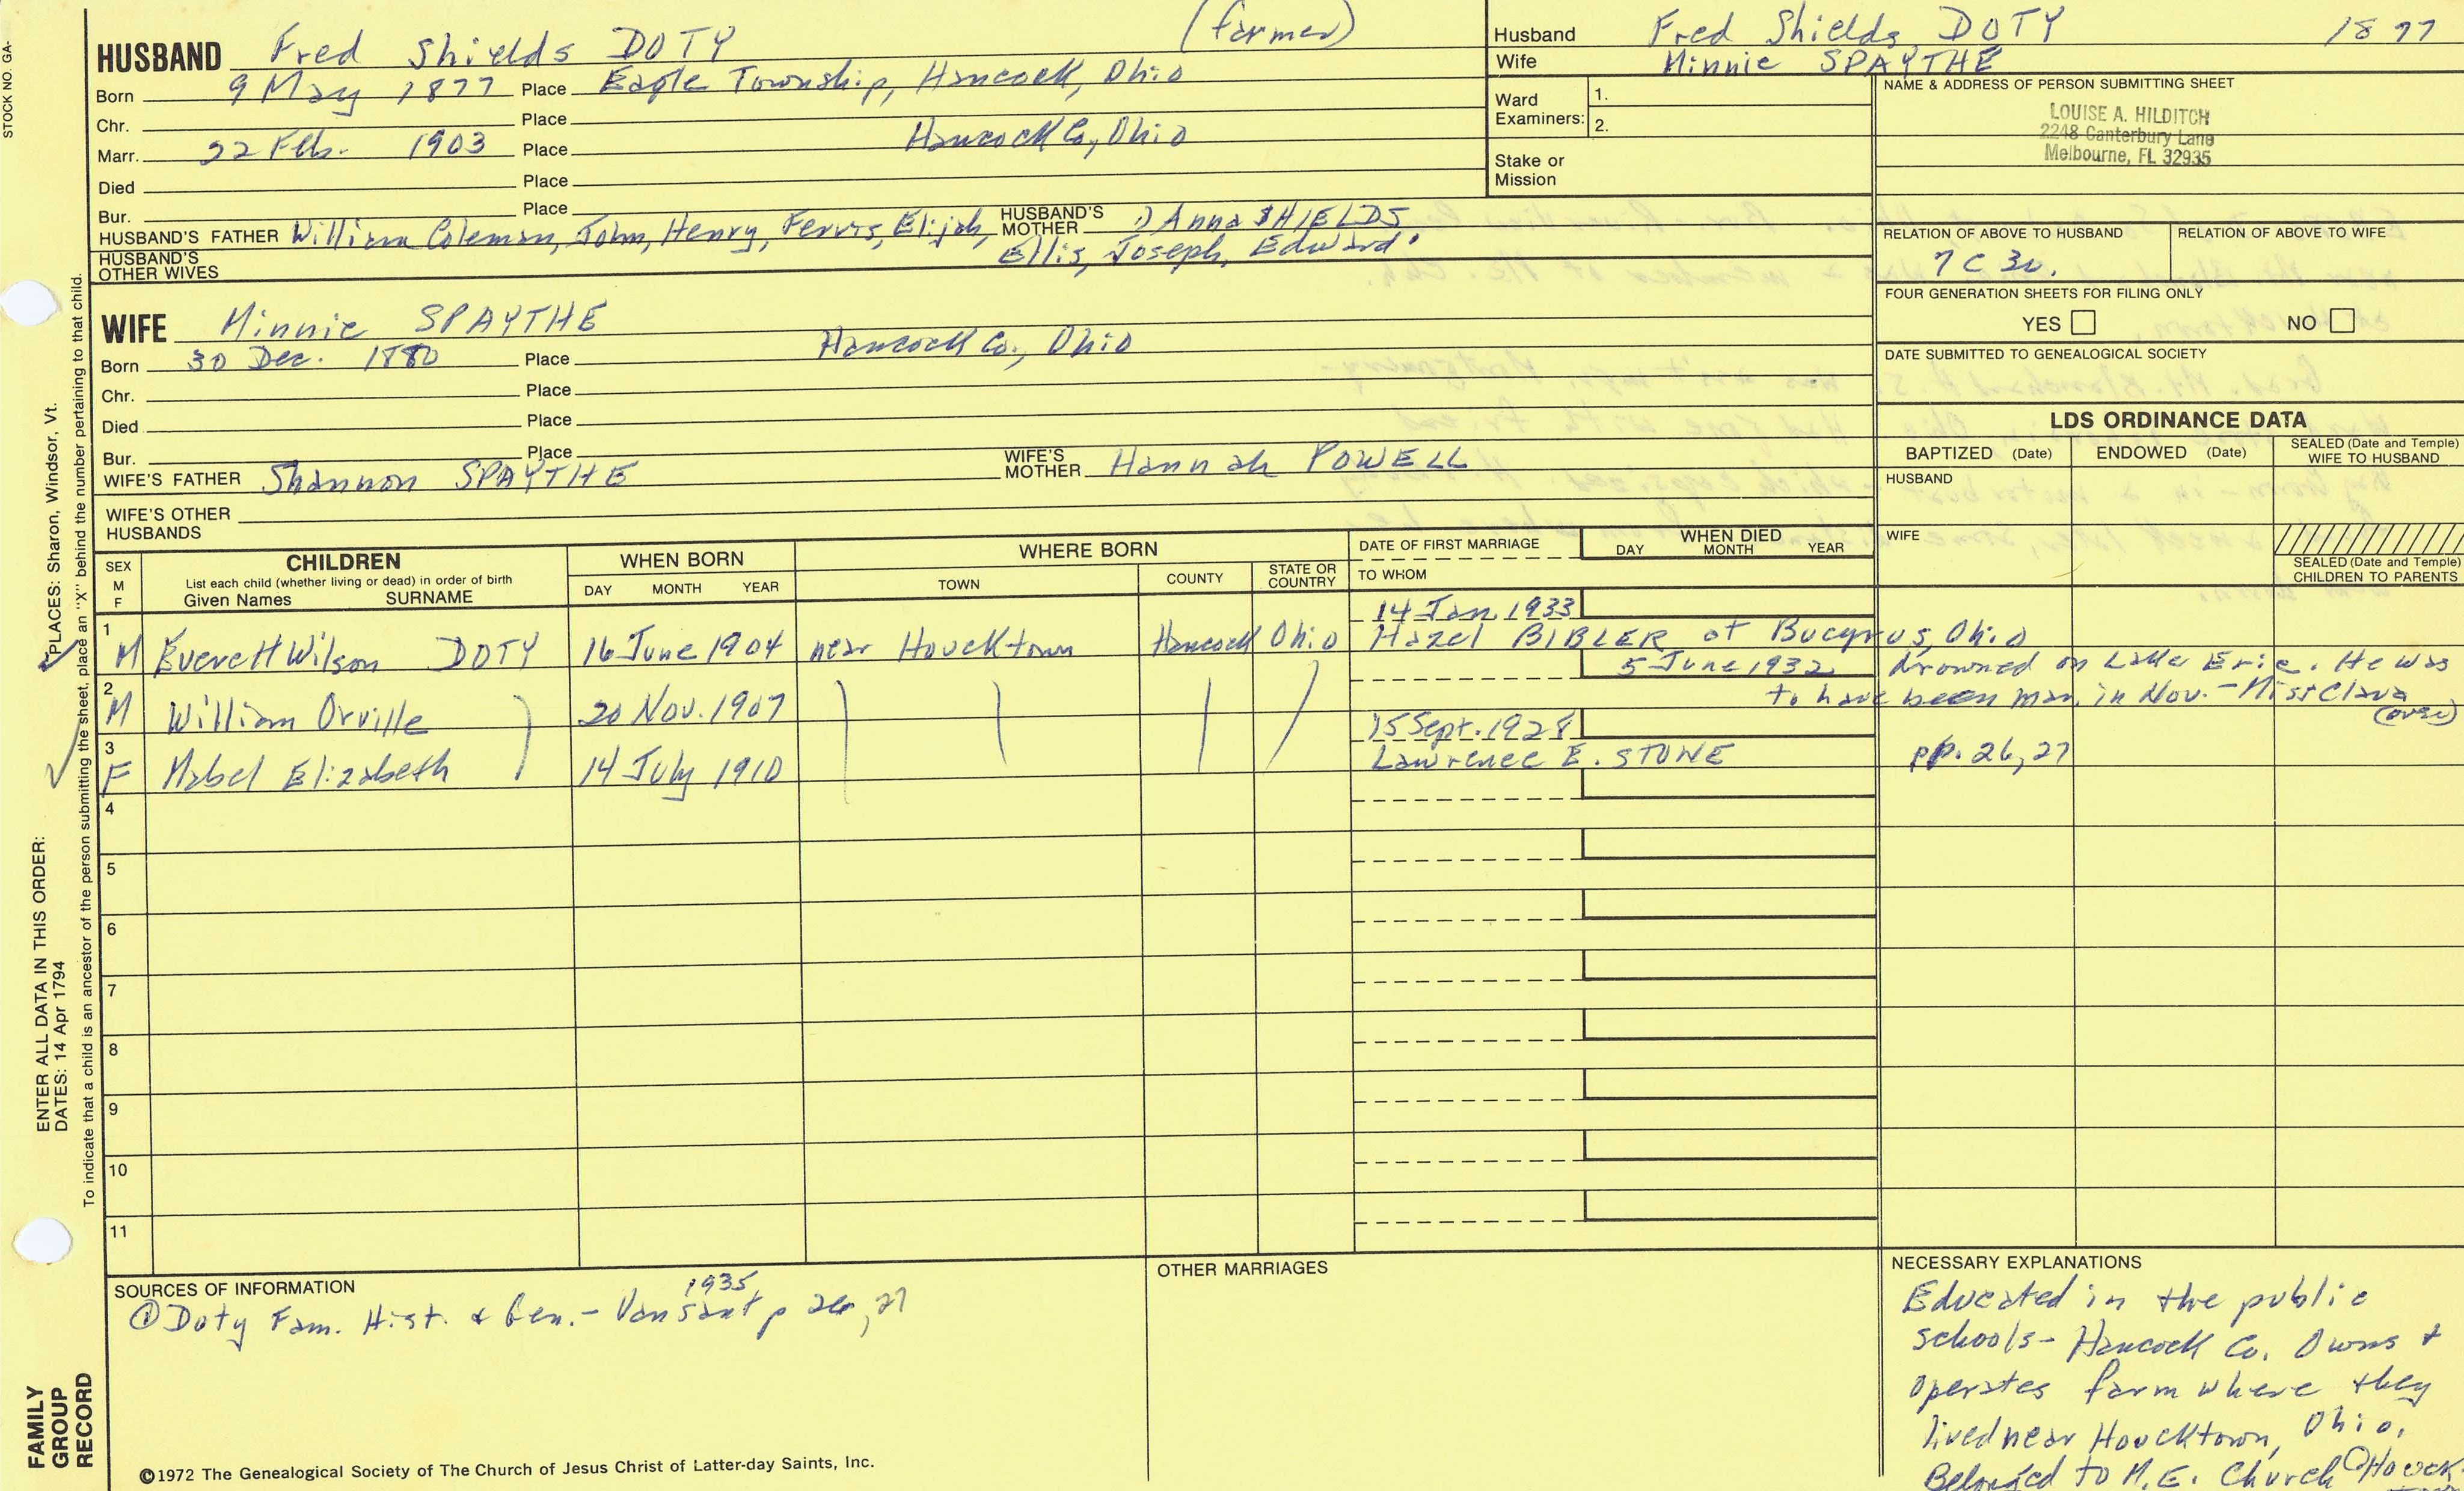 STOCK NO. GA-
HUSBAND Fred Shields DOTY (farmer)
Born 9 May 1877 Place Eagle Township, Hancock, Ohio
Chr. Place
Marr. 22 Feb. 1903 Place Hancock Co, Ohio
Died Place
Bur. Place
HUSBAND'S FATHER William Coleman, John, Henry, Ferris, Elijah, HUSBAND'S MOTHER 1) Anna SHIELDS
HUSBAND'S OTHER WIVES Ellis, Joseph, Edward.
Husband Fred Shields DOTY 1877
Wife Minnie SPAYTHE
Ward Examiners: 1.
2.
Stake or Mission
NAME & ADDRESS OF PERSON SUBMITTING SHEET
LOUISE A. HILDITCH
2248 Canterbury Lane
Melbourne, FL 32935
RELATION OF ABOVE TO HUSBAND RELATION OF ABOVE TO WIFE
7 C 3r.
FOUR GENERATION SHEETS FOR FILING ONLY
YES NO
DATE SUBMITTED TO GENEALOGICAL SOCIETY
WIFE Minnie SPAYTHE
Born 30 Dec. 1880 Place Hancock Co., Ohio
Chr. Place
Died Place
Bur. Place
WIFE'S FATHER Shannon SPAYTHE WIFE'S MOTHER Hannah POWELL
WIFE'S OTHER HUSBANDS
LDS ORDINANCE DATA
BAPTIZED (Date) ENDOWED (Date) SEALED (Date and Temple) WIFE TO HUSBAND
HUSBAND
WIFE
SEALED (Date and Temple) CHILDREN TO PARENTS
SEX M F
CHILDREN
List each child (whether living or dead) in order of birth
Given Names SURNAME
WHEN BORN
DAY MONTH YEAR
WHERE BORN
TOWN COUNTY STATE OR COUNTRY
DATE OF FIRST MARRIAGE
TO WHOM
WHEN DIED
DAY MONTH YEAR
14 Jan. 1933
1 M Everett Wilson DOTY 16 June 1904 near Houcktown Hancock Ohio Hazel BIBLER at Bucyrus, Ohio
5 June 1932 Drowned on Lake Erie. He was
2 M William Orville 20 Nov. 1907 to have been mar. in Nov. - Miss Clara
(over)
15 Sept. 1928
3 F Mabel Elizabeth 14 July 1910 Lawrence E. STONE pp. 26, 27
4
5
6
7
8
9
10
11
SOURCES OF INFORMATION
1935
① Doty Fam. Hist. & Gen. - Van Sant p 26, 27
OTHER MARRIAGES
NECESSARY EXPLANATIONS
Educated in the public
schools - Hancock Co. Owns &
operates farm where they
lived near Houcktown, Ohio.
Belonged to M.E. Church @ Houck-
©1972 The Genealogical Society of The Church of Jesus Christ of Latter-day Saints, Inc.
ENTER ALL DATA IN THIS ORDER:
DATES: 14 Apr 1794
PLACES: Sharon, Windsor, Vt.
To indicate that a child is an ancestor of the person submitting the sheet, place an "X" behind the number pertaining to that child.
FAMILY
GROUP
RECORD